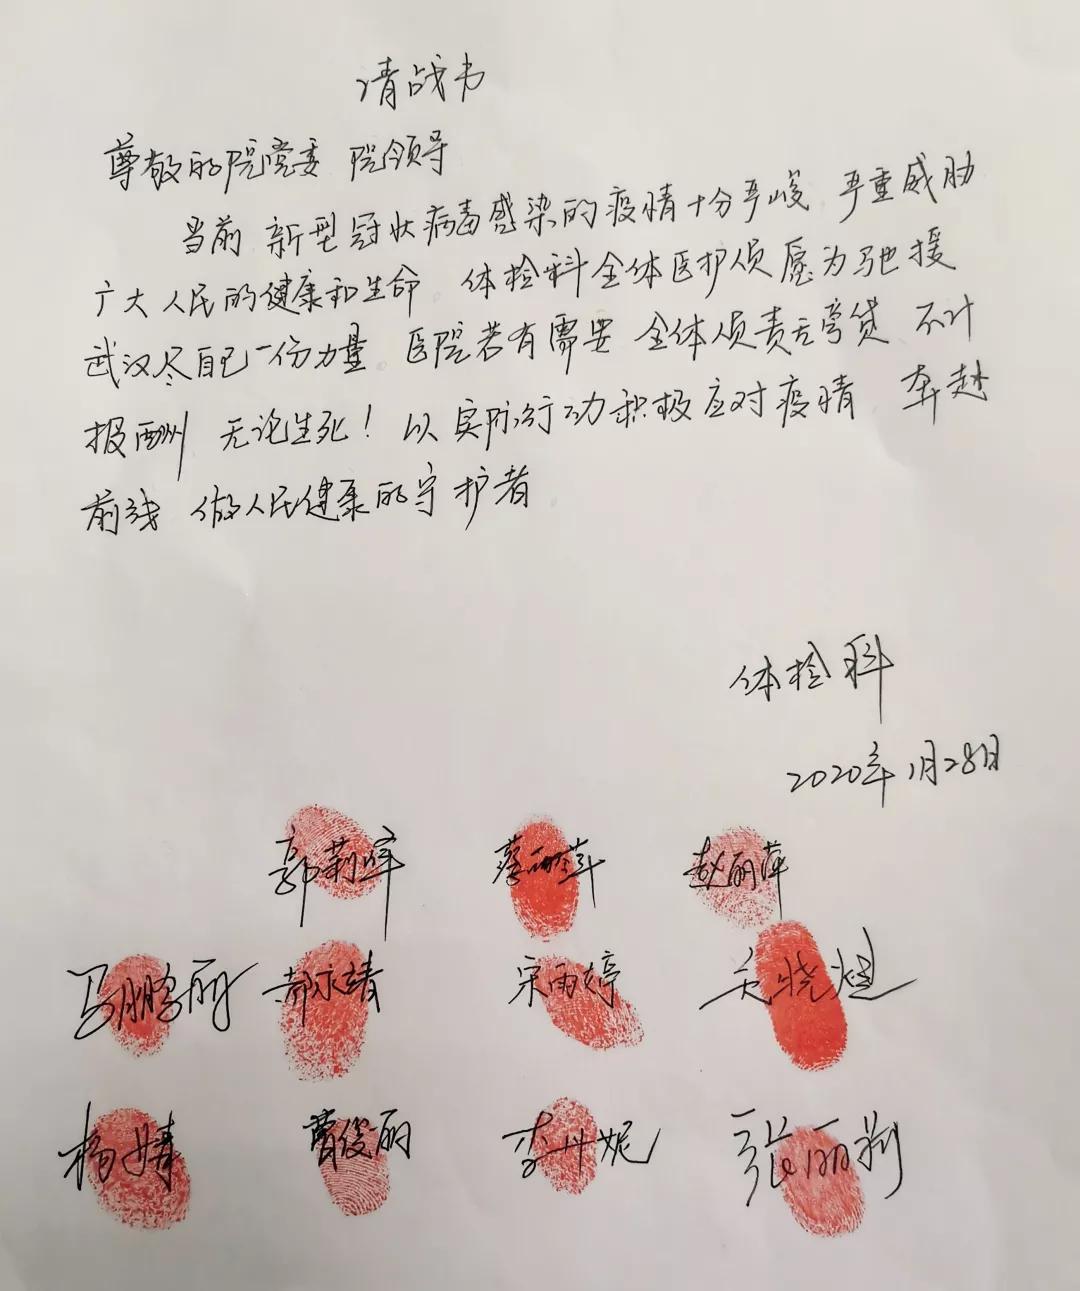 请战书
尊敬的院党委 院领导
当前 新型冠状病毒感染的疫情十分严峻 严重威胁
广大人民的健康和生命 体检科全体医护员愿为驰援
武汉尽自己一份力量 医院若有需要 全体员责无旁贷 不计
报酬 无论生死！以实际行动积极应对疫情 奔赴
前线 做人民健康的守护者
体检科
2020年1月28日
郭莉 蔡丽萍 赵丽萍
马鹏丽 郝永靖 宋雨婷 关晓
杨婧 曹俊丽 李丹妮 张丽莉